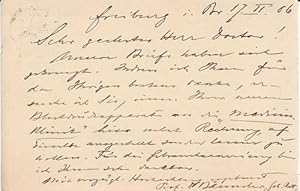 Freiburg i. Br. 17. II 06
Sehr geehrter Herr Doctor!
Unsere Briefe haben sich
gekreuzt. Indem ich Ihnen für
den Ihrigen bestens danke, er-
suche ich Sie, einen Ihrer neuen
Blutdruckapparate an die "Medicin.
Klinik" hier nebst Rechnung, auf
dieselbe ausgestellt, senden lassen zu
wollen. Für die
ich Ihnen sehr dankbar.
Mit vorzügl. Hochachtung
Prof. Bäumler